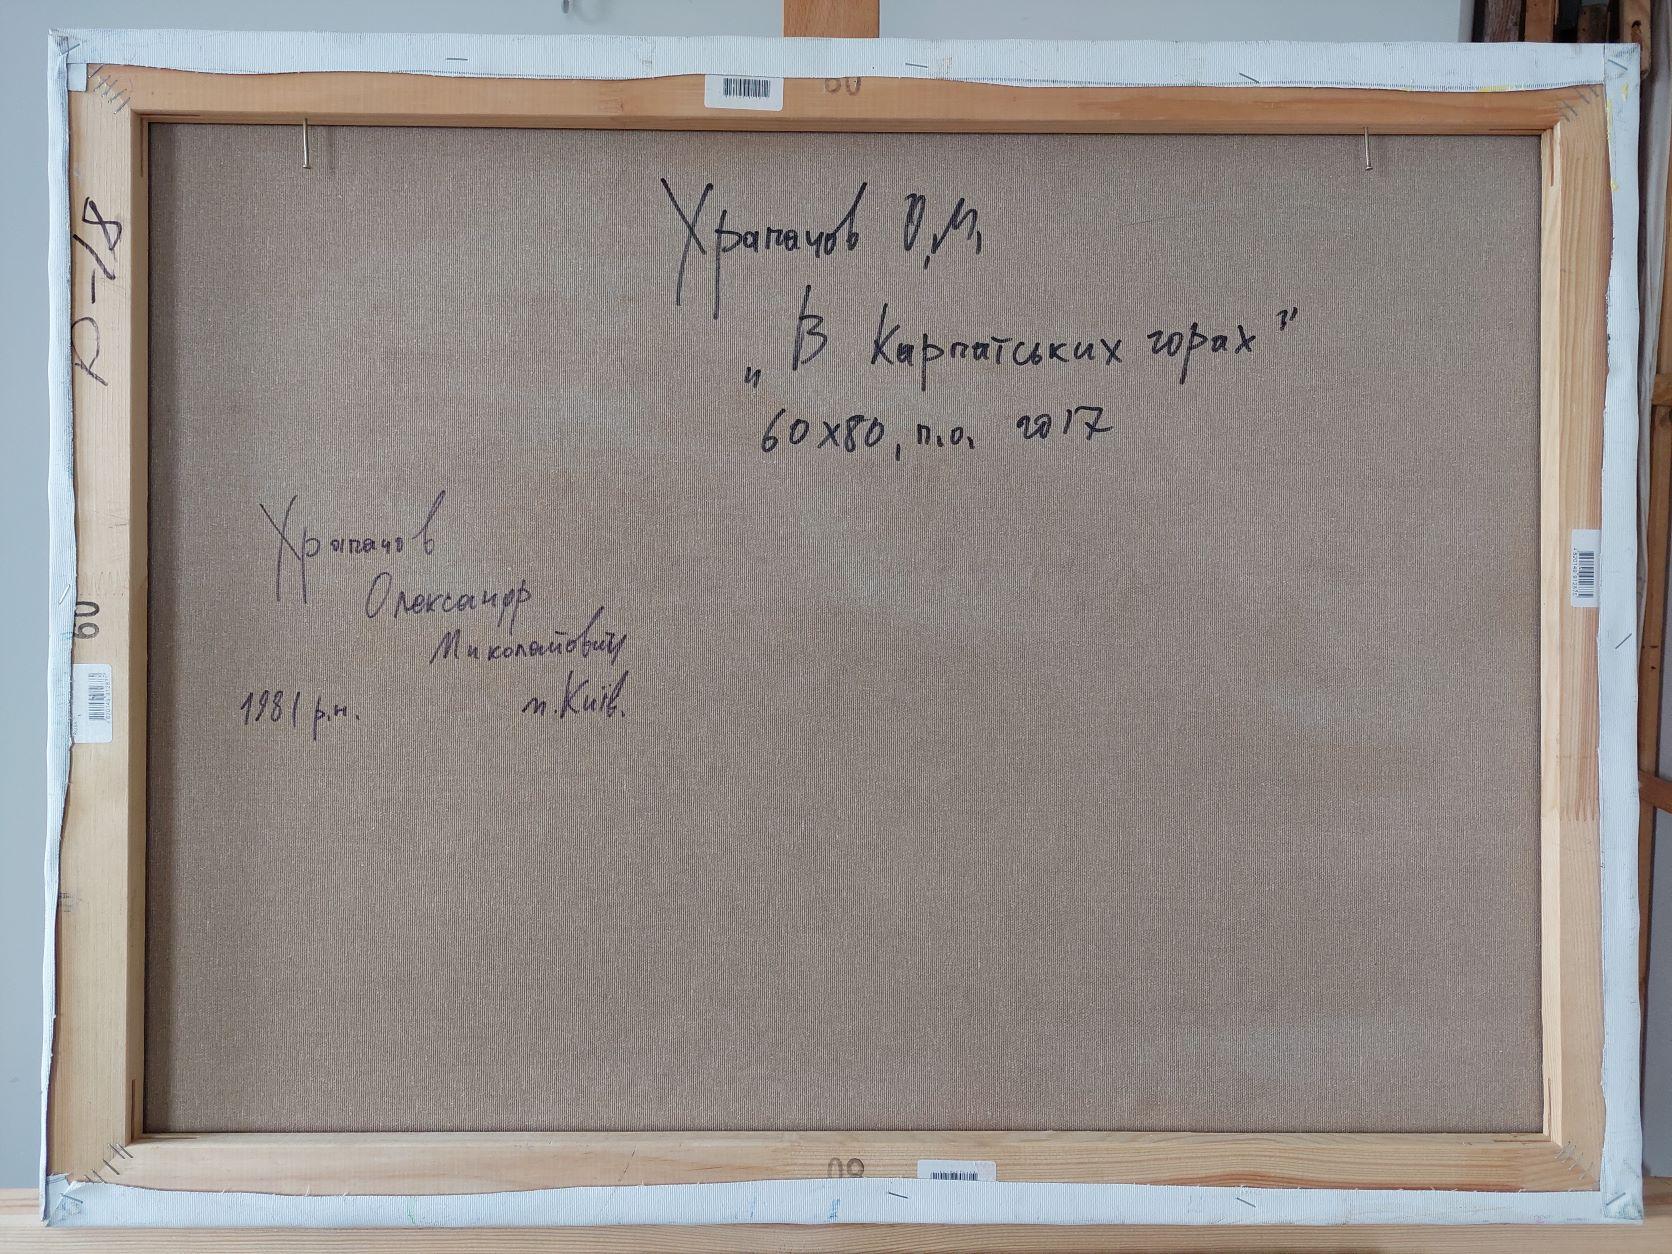 Храпачов О.М.
„В Карпатських горах”
60x80, п.о. 2017
Храпачов
Олександр
Миколайович
1981 р.н. м.Київ.
60
60